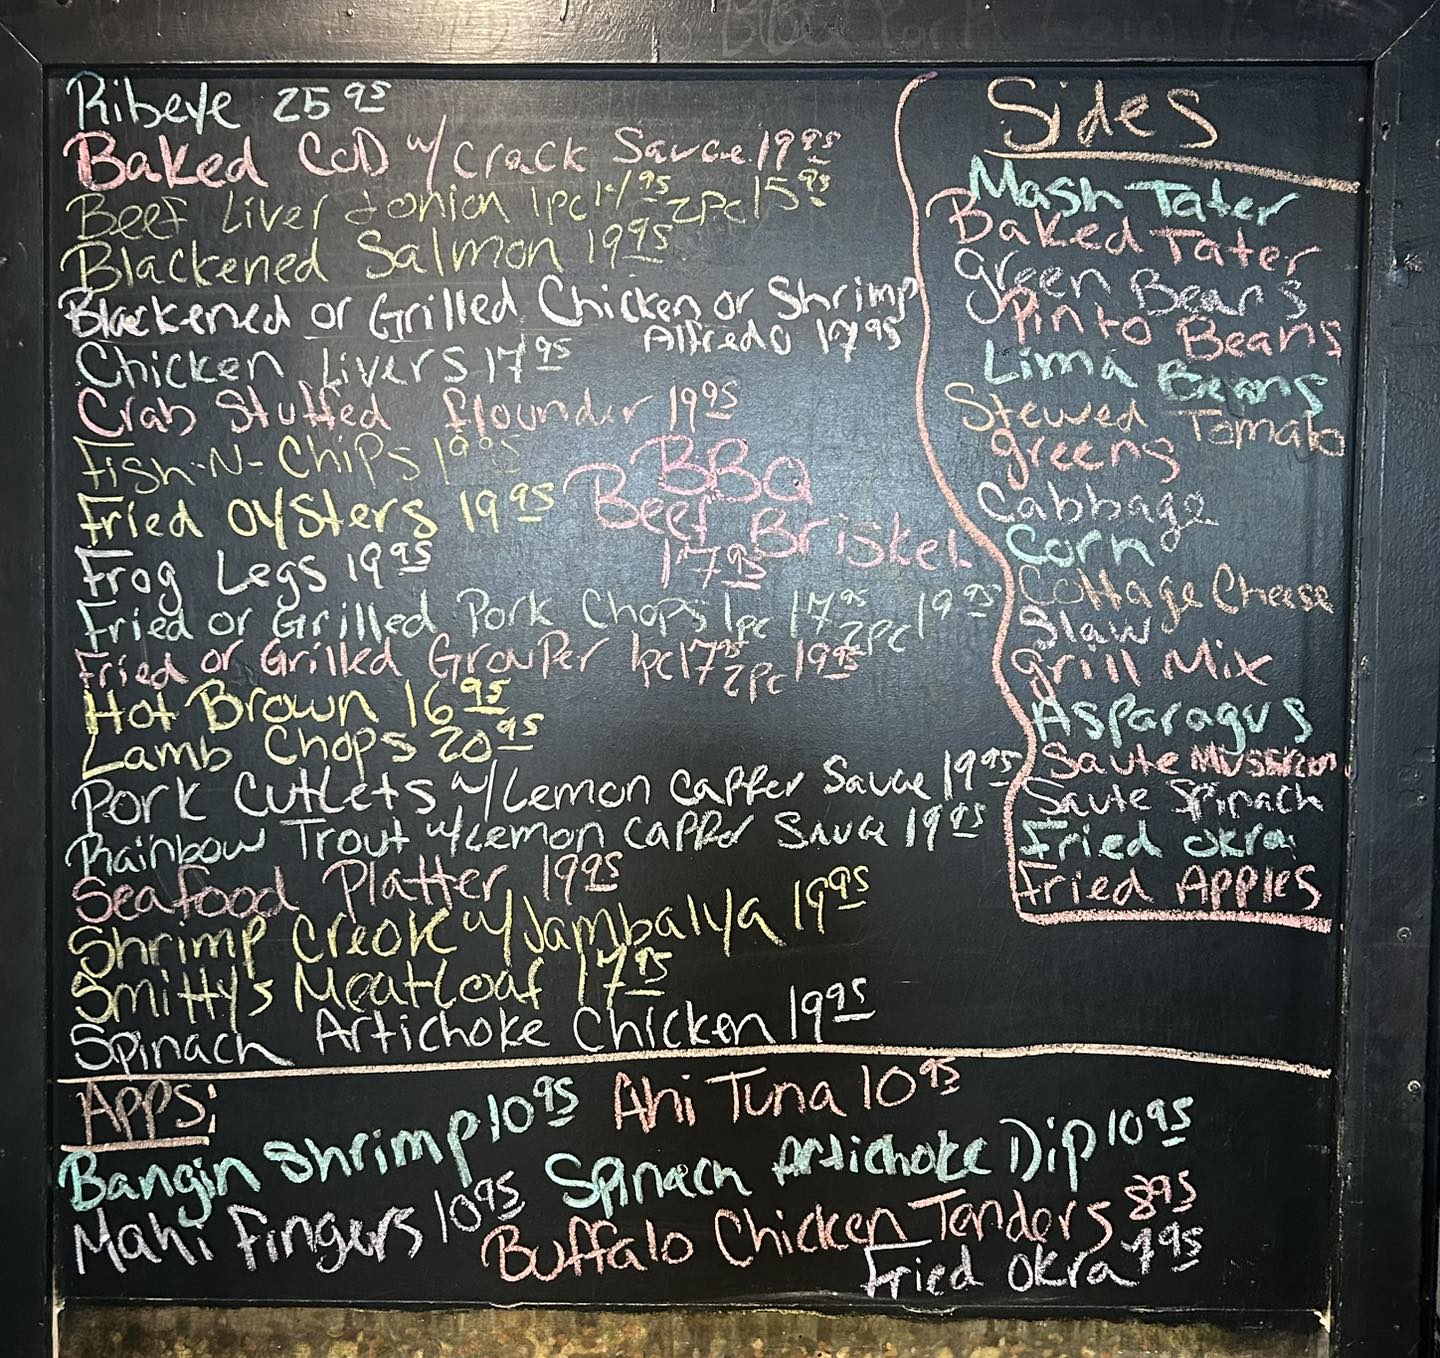 Ribeye 25 95
Baked CoD w/ Crack Sauce 19 95
Beef Liver & onion 1pc 14 95 2pc 15 95
Blackened Salmon 19 95
Blackened or Grilled Chicken or Shrimp
Alfredo 17 95
Chicken Livers 17 95
Crab Stuffed flounder 19 95
Fish-N-Chips 19 95
Fried Oysters 19 95
BBQ
Beef Brisket
17 95
Frog Legs 19 95
Fried or Grilled Pork Chops 1pc 17 95 2pc 19 95
Fried or Grilled Grouper 1pc 17 95 2pc 19 95
Hot Brown 16 95
Lamb Chops 20 95
Pork Cutlets w/ Lemon Capper Sauce 19 95
Rainbow Trout w/ Lemon Capper Sauce 19 95
Seafood Platter 19 95
Shrimp Creok w/ Jambalya 19 95
Smitty's Meatloaf 17 95
Spinach Artichoke Chicken 19 95
Sides
Mash Tater
Baked Tater
green Beans
Pinto Beans
Lima Beans
Stewed Tomato
greens
Cabbage
Corn
Cottage Cheese
Slaw
Grill Mix
Asparagus
Saute Mushroom
Saute Spinach
Fried okra
Fried Apples
Apps:
Bangin Shrimp 10 95 Ahi Tuna 10 95
Spinach Artichoke Dip 10 95
Mahi Fingers 10 95
Buffalo Chicken Tenders 8 95
Fried okra 7 95